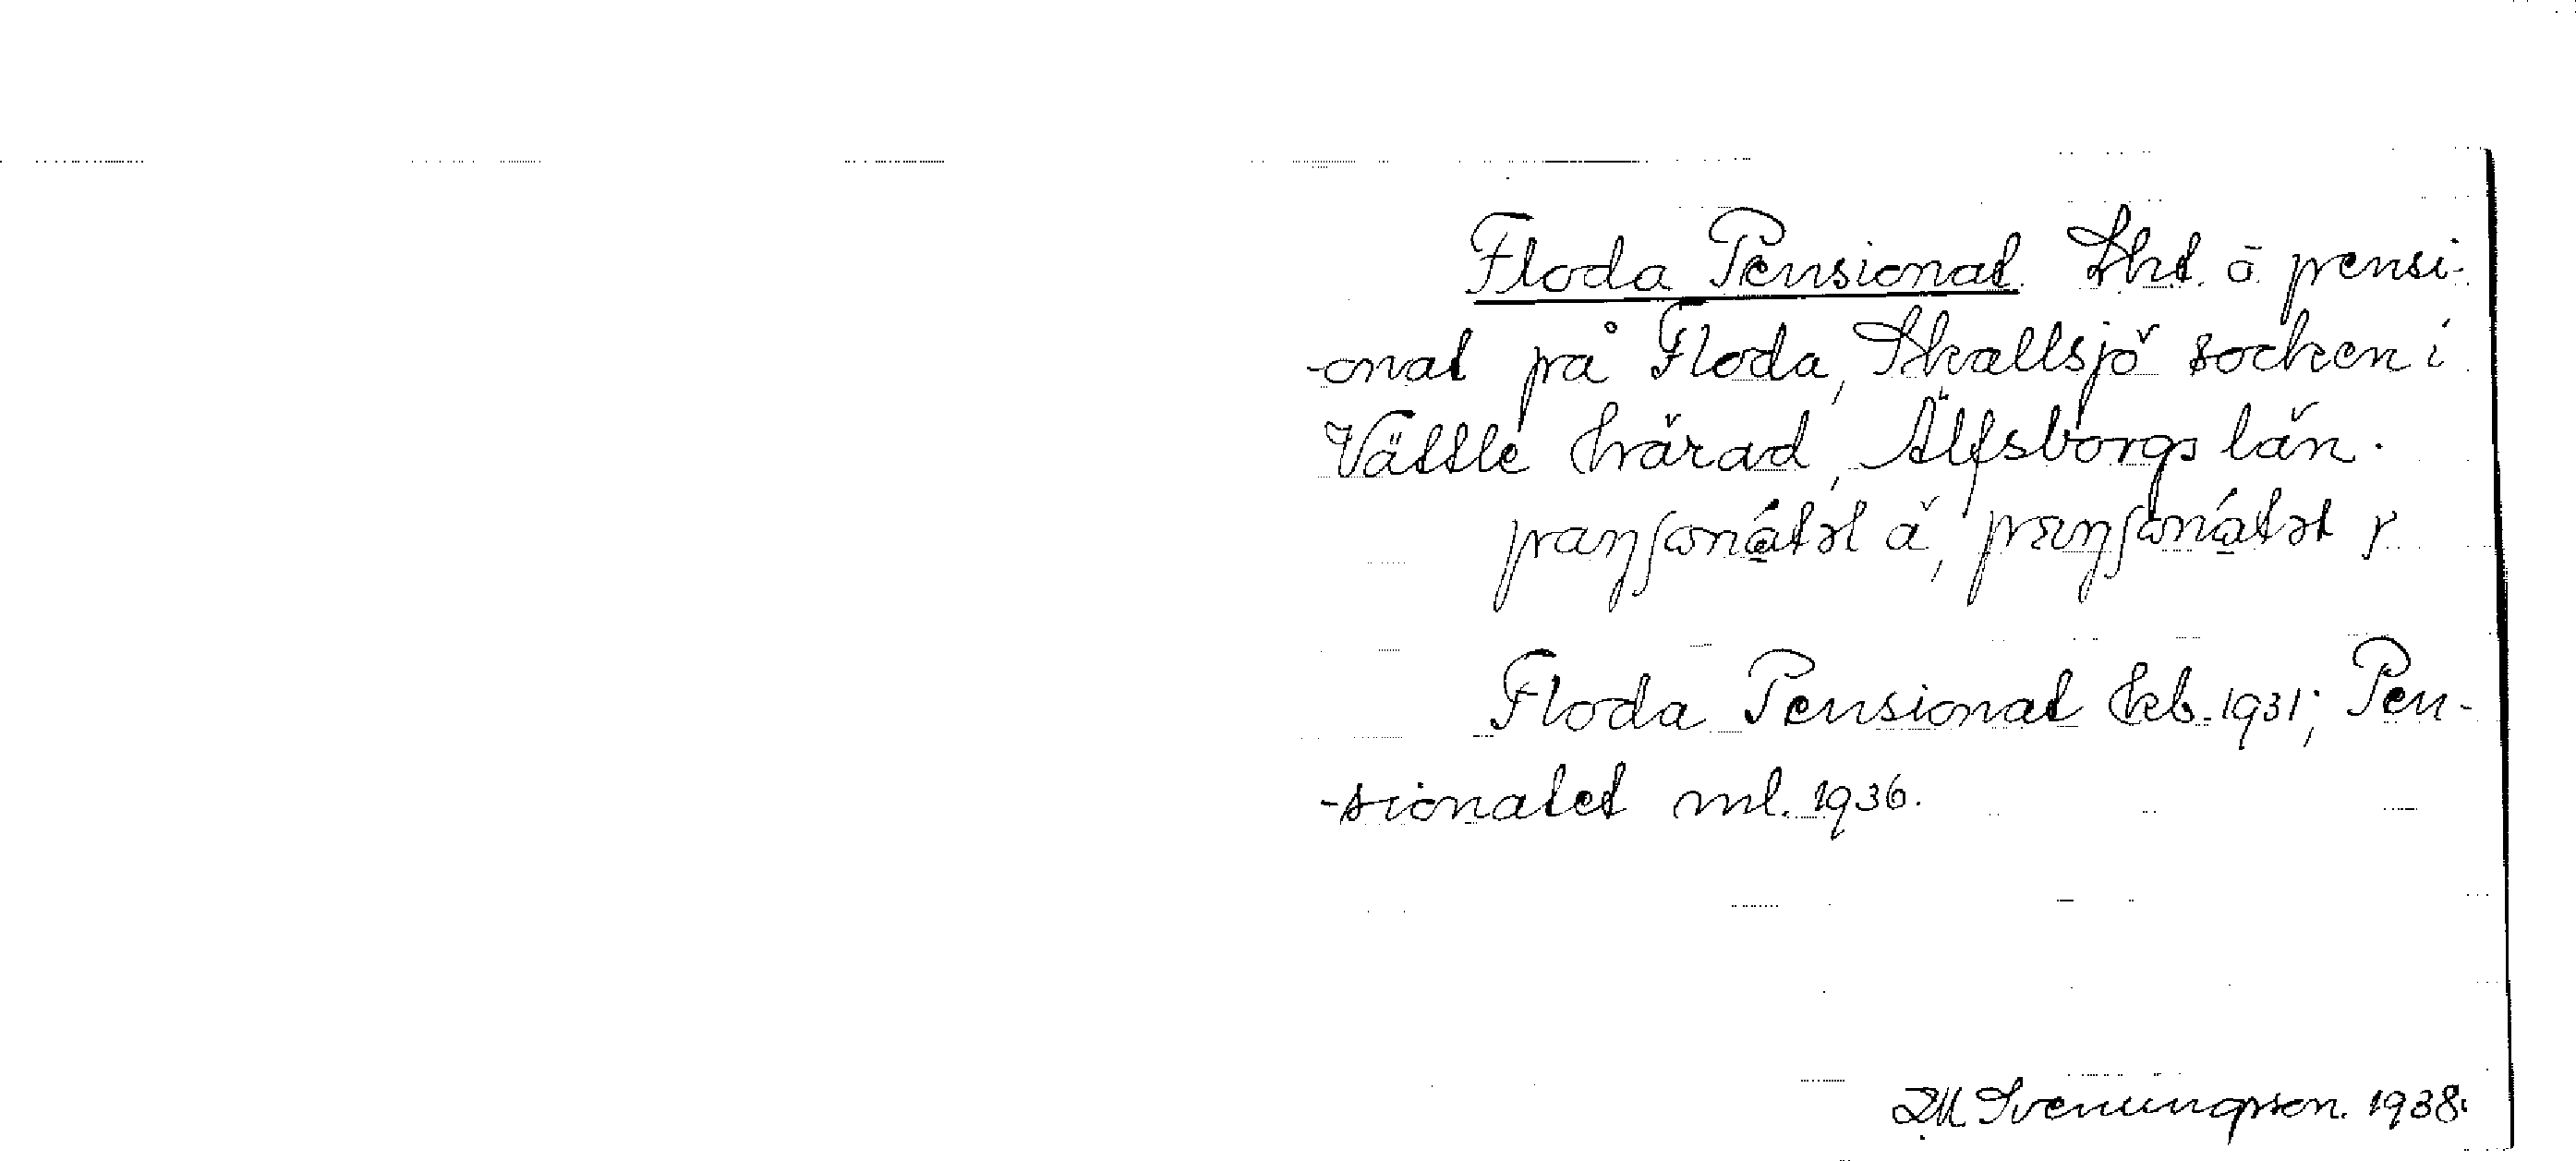 Floda Pensionat. Skt. o. pensi-
-onat på Floda, Skallsjö socken i
Vättle härad, Älfsborgs län.
paŋʃɷnátət ä, pæŋʃɷnátət y
Floda Pensionat kb. 1931; Pen-
-sionatet ml. 1936.
Svenungsson. 1938.